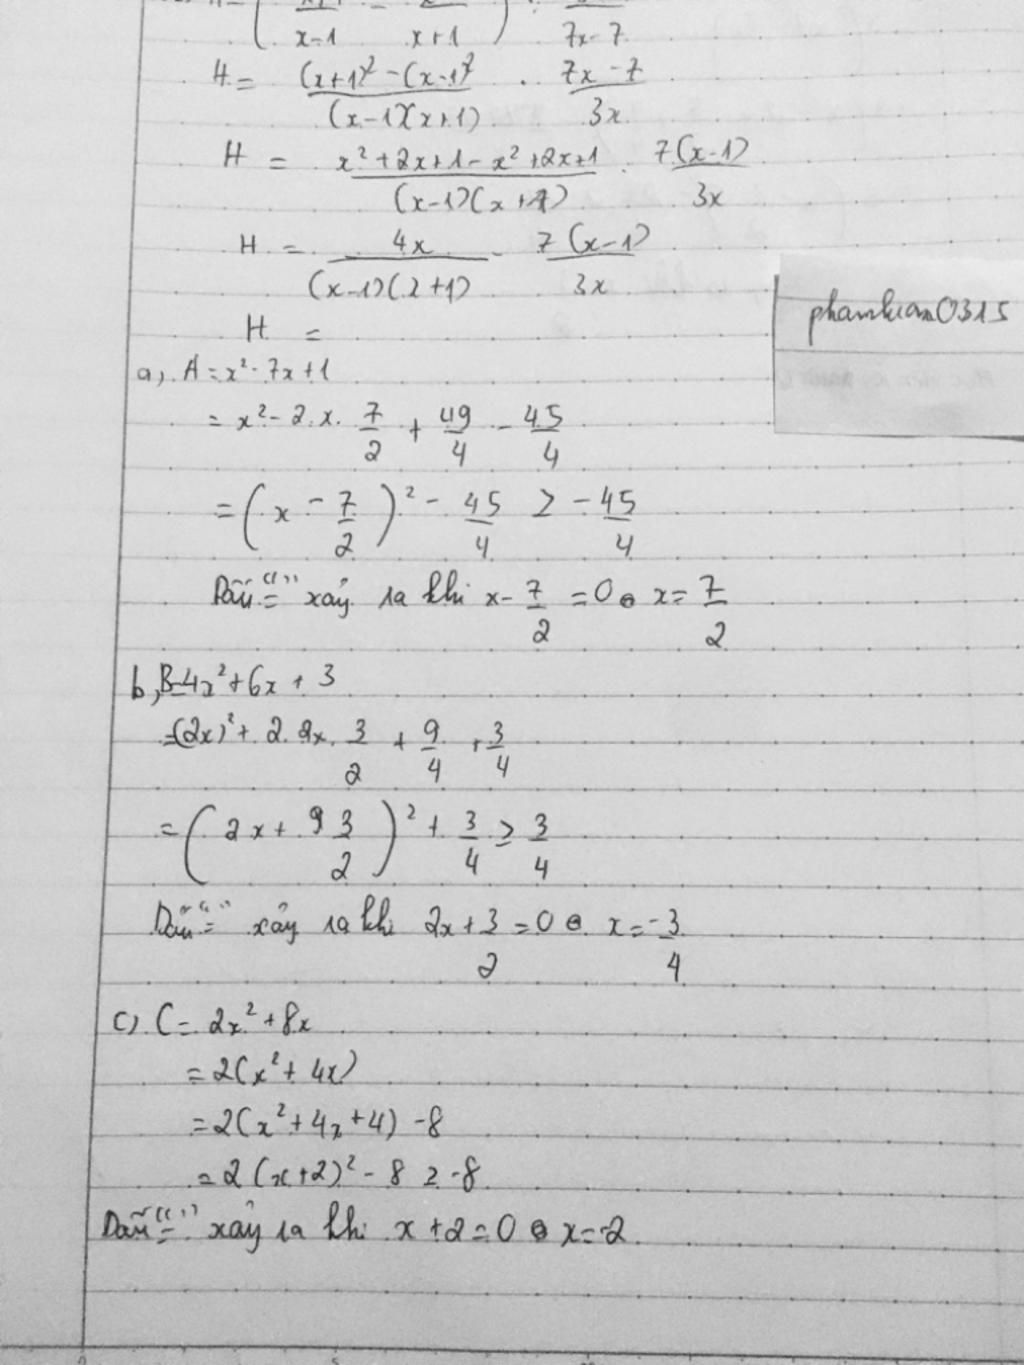 x-1 x+1 7x-7
H = (x+1)² - (x-1)² / (x-1)(x+1) . 7x-7 / 3x
H = x²+2x+1-x²+2x+1 / (x-1)(x+1) . 7(x-1) / 3x
H = 4x / (x-1)(2+1) . 7(x-1) / 3x
H =
phamtuan0315
a, A = x² - 7x + 1
= x² - 2.x. 7/2 + 49/4 - 45/4
= (x - 7/2)² - 45/4 ≥ -45/4
Dấu "=" xảy ra khi x - 7/2 = 0 ⇔ x = 7/2
b, B=4x²+6x+3
=(2x)² + 2.2x. 3/2 + 9/4 + 3/4
= (2x + 3/2)² + 3/4 ≥ 3/4
Dấu "=" xảy ra khi 2x + 3/2 = 0 ⇔ x = -3/4
c, C = 2x² + 8x
= 2(x² + 4x)
= 2(x² + 4x + 4) - 8
= 2(x+2)² - 8 ≥ -8
Dấu "=" xảy ra khi x + 2 = 0 ⇔ x = -2